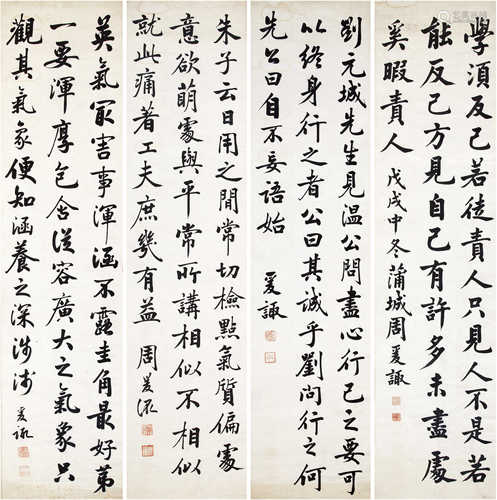 學須反己若徒責人只見人不是若
能反己方見自己有許多未盡處
奚暇責人
戊戌中冬蒲城周爰諏
劉元城先生見溫公問盡心行己之要可
以終身行之者公曰其誠乎劉問行之何
先公曰自不妄語始
爰諏
朱子云日用之間常切檢點氣質偏處
意欲萌處與平常所講相似不相似
就此痛著工夫庶幾有益
周爰諏
英氣最害事渾涵不露圭角最好第
一要渾厚包含從容廣大之氣象只
觀其氣象便知涵養之深淺
爰諏